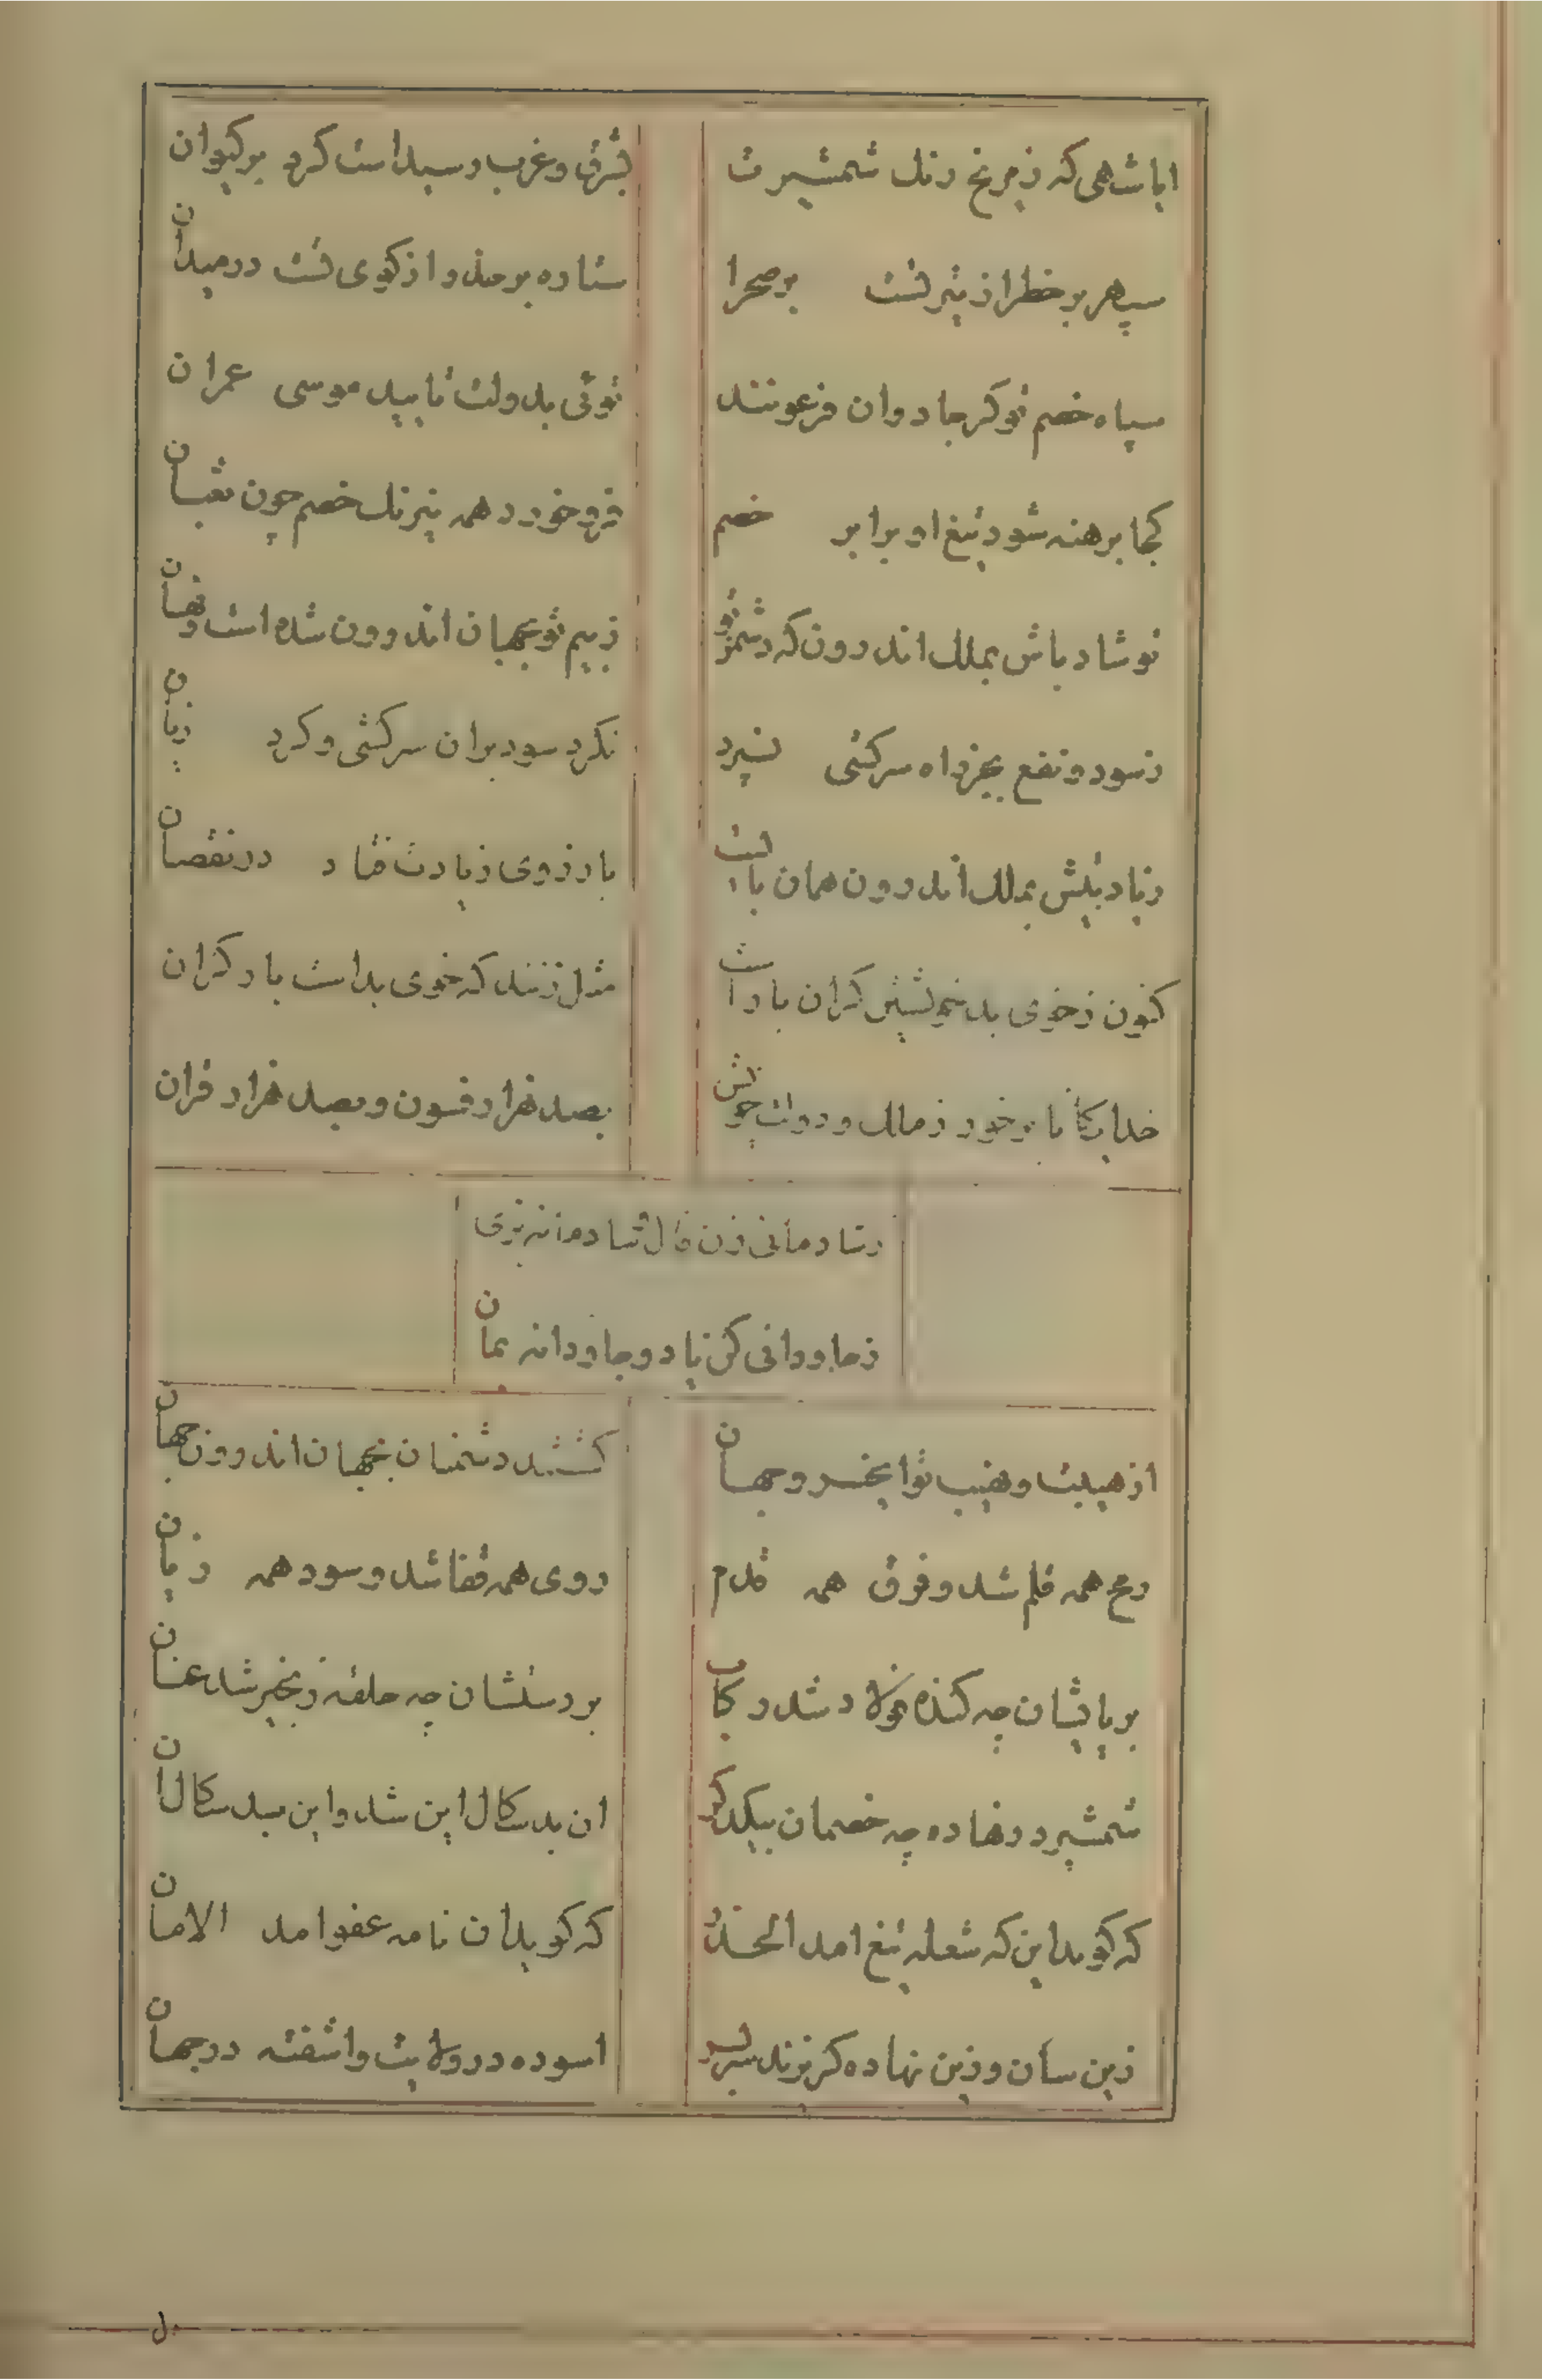 ایا شهی که ز مریخ رنگ شمشیرت
بشرق و غرب رسیداست کرد بر کیوان
سپهر بر خطر از تیر تست بر صحرا
ستاره بر حذر از کوی تست در میدان
سپاه خصم تو کر جادوان فرعونند
توئی بدولت تایید موسی عمران
کجا برهنه شود تیغ او برابر خصم
فرو خورد همه نیرنک خصم چون ثعبان
تو شاد باش بملک اندرون که دشمن تو
ز بیم تو بجهان اندرون شده است نهان
ز سود و نفع بجز راه سرکشی نسپرد
نکرد سود بر ان سرکشی و کرد زیان
زیاد بیش بملک اندرون همان بایست
بارزوی زیادت فتاد در نقصان
کنون ز خوی بد خویش کران بار است
مثل زنند که خوی بد است بار کران
خدایکانا بر خور ز ملک و دولت خویش
بصد هزار فسون و بصد هزار قران
بشادمانی زن فال شادمانه بزی
ز جاودانی کن یاد و جاودانه بمان
از هیبت و نهیب تو ای خسرو جهان
کشتند دشمنان بجهان اندرون جهان
رمح همه قلم شد و فرق همه قدم
روی همه قفا شد و سود همه زیان
بر پایشان چه کنده فولاد شد رکاب
بر دستشان چه حلقه زنجیر شد عنان
شمشیر در نهاده چه خصمان بیکدکر
ان بد سکال این شد و این بد سکال ان
که کوید این که شعله تیغ امد الحذر
که کوید ان نامه عفو امد الامان
زین سان و زین نهاده کریزند سربسر
اسوده در ولایت و اشفته در جهان